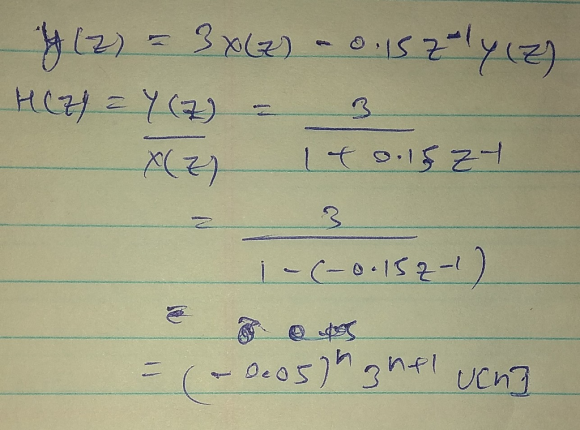 Y(z) = 3X(z) - 0.15z^-1 Y(z)
H(z) = Y(z)/X(z) = 3/(1 + 0.15z^-1)
= 3/(1-(-0.15z^-1))
=
= (-0.05)^n 3^(n+1) u[n]